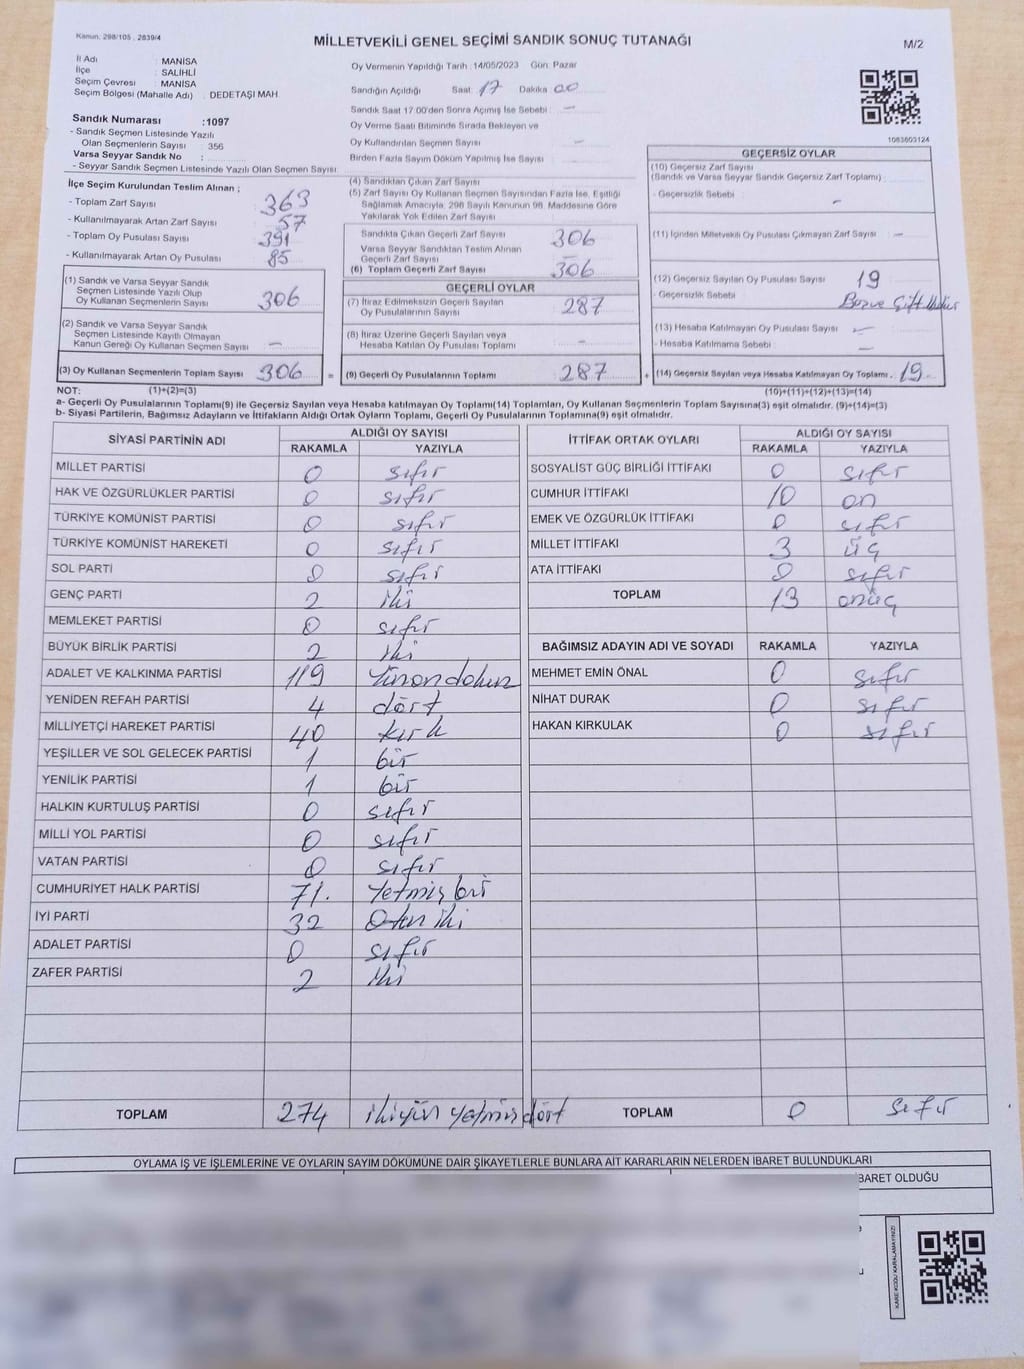 Kanun: 298/105, 2839/4
MİLLETVEKİLİ GENEL SEÇİMİ SANDIK SONUÇ TUTANAĞI
M/2
İl Adı : MANİSA
İlçe : SALİHLİ
Seçim Çevresi : MANİSA
Seçim Bölgesi (Mahalle Adı) : DEDETAŞI MAH.
Sandık Numarası :1097
- Sandık Seçmen Listesinde Yazılı
Olan Seçmenlerin Sayısı : 356
Varsa Seyyar Sandık No :
- Seyyar Sandık Seçmen Listesinde Yazılı Olan Seçmen Sayısı :
Oy Vermenin Yapıldığı Tarih :14/05/2023 Gün: Pazar
Sandığın Açıldığı Saat: 17 Dakika 00
Sandık Saat 17:00'den Sonra Açımış İse Sebebi : -
Oy Verme Saati Bitiminde Sırada Bekleyen ve
Oy Kullandırılan Seçmen Sayısı -
Birden Fazla Sayım Döküm Yapılmış İse Sayısı
1083603124
İlçe Seçim Kurulundan Teslim Alınan ;
- Toplam Zarf Sayısı 363
- Kullanılmayarak Artan Zarf Sayısı 57
- Toplam Oy Pusulası Sayısı 391
- Kullanılmayarak Artan Oy Pusulası 85
(1) Sandık ve Varsa Seyyar Sandık
Seçmen Listesinde Yazılı Olup
Oy Kullanan Seçmenlerin Sayısı 306
(2) Sandık ve Varsa Seyyar Sandık
Seçmen Listesinde Kayıtlı Olmayan
Kanun Gereği Oy Kullanan Seçmen Sayısı -
(3) Oy Kullanan Seçmenlerin Toplam Sayısı 306 =
(4) Sandıktan Çıkan Zarf Sayısı
(5) Zarf Sayısı Oy Kullanan Seçmen Sayısından Fazla İse, Eşitliği
Sağlamak Amacıyla, 298 Sayılı Kanunun 98. Maddesine Göre
Yakılarak Yok Edilen Zarf Sayısı
Sandıkta Çıkan Geçerli Zarf Sayısı 306
Varsa Seyyar Sandıktan Teslim Alınan
Geçerli Zarf Sayısı -
(6) Toplam Geçerli Zarf Sayısı 306
GEÇERLİ OYLAR
(7) İtiraz Edilmeksizin Geçerli Sayılan
Oy Pusulalarının Sayısı 287
(8) İtiraz Üzerine Geçerli Sayılan veya
Hesaba Katılan Oy Pusulası Toplamı -
(9) Geçerli Oy Pusulalarının Toplamı 287 +
GEÇERSİZ OYLAR
(10) Geçersiz Zarf Sayısı
(Sandık ve Varsa Seyyar Sandık Geçersiz Zarf Toplamı) :
- Geçersizlik Sebebi : -
(11) İçinden Milletvekili Oy Pusulası Çıkmayan Zarf Sayısı -
(12) Geçersiz Sayılan Oy Pusulası Sayısı 19
- Geçersizlik Sebebi
(13) Hesaba Katılmayan Oy Pusulası Sayısı -
- Hesaba Katılmama Sebebi : -
(14) Geçersiz Sayılan veya Hesaba Katılmayan Oy Toplamı . 19
NOT: (1)+(2)=(3) (10)+(11)+(12)+(13)=(14)
a- Geçerli Oy Pusulalarının Toplamı(9) ile Geçersiz Sayılan veya Hesaba katılmayan Oy Toplamı(14) Toplamları, Oy Kullanan Seçmenlerin Toplam Sayısına(3) eşit olmalıdır. (9)+(14)=(3)
b- Siyasi Partilerin, Bağımsız Adayların ve İttifakların Aldığı Ortak Oyların Toplamı, Geçerli Oy Pusulalarının Toplamına(9) eşit olmalıdır.
SİYASİ PARTİNİN ADI ALDIĞI OY SAYISI
RAKAMLA YAZIYLA
MİLLET PARTİSİ 0 sıfır
HAK VE ÖZGÜRLÜKLER PARTİSİ 0 sıfır
TÜRKİYE KOMÜNİST PARTİSİ 0 sıfır
TÜRKİYE KOMÜNİST HAREKETİ 0 sıfır
SOL PARTİ 0 sıfır
GENÇ PARTİ 2 iki
MEMLEKET PARTİSİ 0 sıfır
BÜYÜK BİRLİK PARTİSİ 2 iki
ADALET VE KALKINMA PARTİSİ 119 yüzondokuz
YENİDEN REFAH PARTİSİ 4 dört
MİLLİYETÇİ HAREKET PARTİSİ 40 kırk
YEŞİLLER VE SOL GELECEK PARTİSİ 1 bir
YENİLİK PARTİSİ 1 bir
HALKIN KURTULUŞ PARTİSİ 0 sıfır
MİLLİ YOL PARTİSİ 0 sıfır
VATAN PARTİSİ 0 sıfır
CUMHURİYET HALK PARTİSİ 71. Yetmiş bir
İYİ PARTİ 32 Otuz iki
ADALET PARTİSİ 0 sıfır
ZAFER PARTİSİ 2 iki
TOPLAM 274 ikiyüz yetmiş dört
İTTİFAK ORTAK OYLARI ALDIĞI OY SAYISI
RAKAMLA YAZIYLA
SOSYALİST GÜÇ BİRLİĞİ İTTİFAKI 0 sıfır
CUMHUR İTTİFAKI 10 on
EMEK VE ÖZGÜRLÜK İTTİFAKI 0 sıfır
MİLLET İTTİFAKI 3 üç
ATA İTTİFAKI 0 sıfır
TOPLAM 13 onüç
BAĞIMSIZ ADAYIN ADI VE SOYADI RAKAMLA YAZIYLA
MEHMET EMİN ÖNAL 0 sıfır
NİHAT DURAK 0 sıfır
HAKAN KIRKULAK 0 sıfır
TOPLAM 0 sıfır
OYLAMA İŞ VE İŞLEMLERİNE VE OYLARIN SAYIM DÖKÜMÜNE DAİR ŞİKAYETLERLE BUNLARA AİT KARARLARIN NELERDEN İBARET BULUNDUKLARI
BARET OLDUĞU
KARE KODU KARALAMAYINIZ!